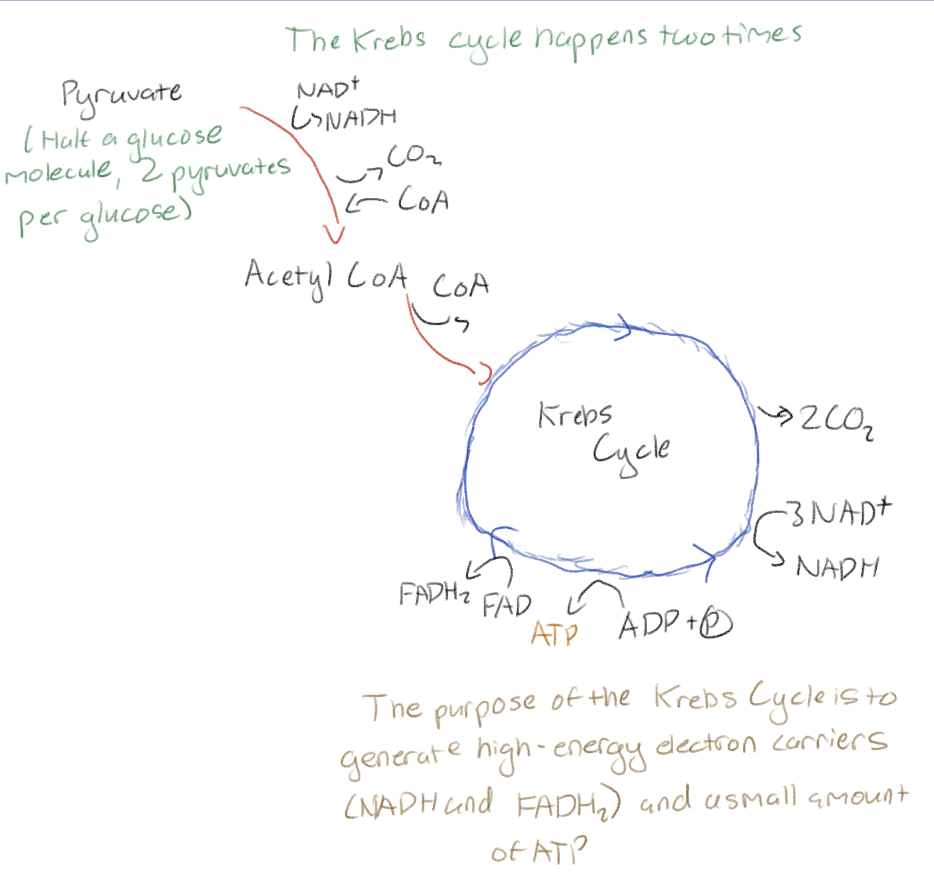 The Krebs cycle happens two times
Pyruvate
(Half a glucose
molecule, 2 pyruvates
per glucose)
NAD+
NADH
CO₂
CoA
Acetyl CoA
CoA
Krebs
Cycle
2CO₂
3NAD+
NADH
FADH₂
FAD
ATP
ADP + P
The purpose of the Krebs Cycle is to
generate high-energy electron carriers
(NADH and FADH₂) and a small amount
of ATP